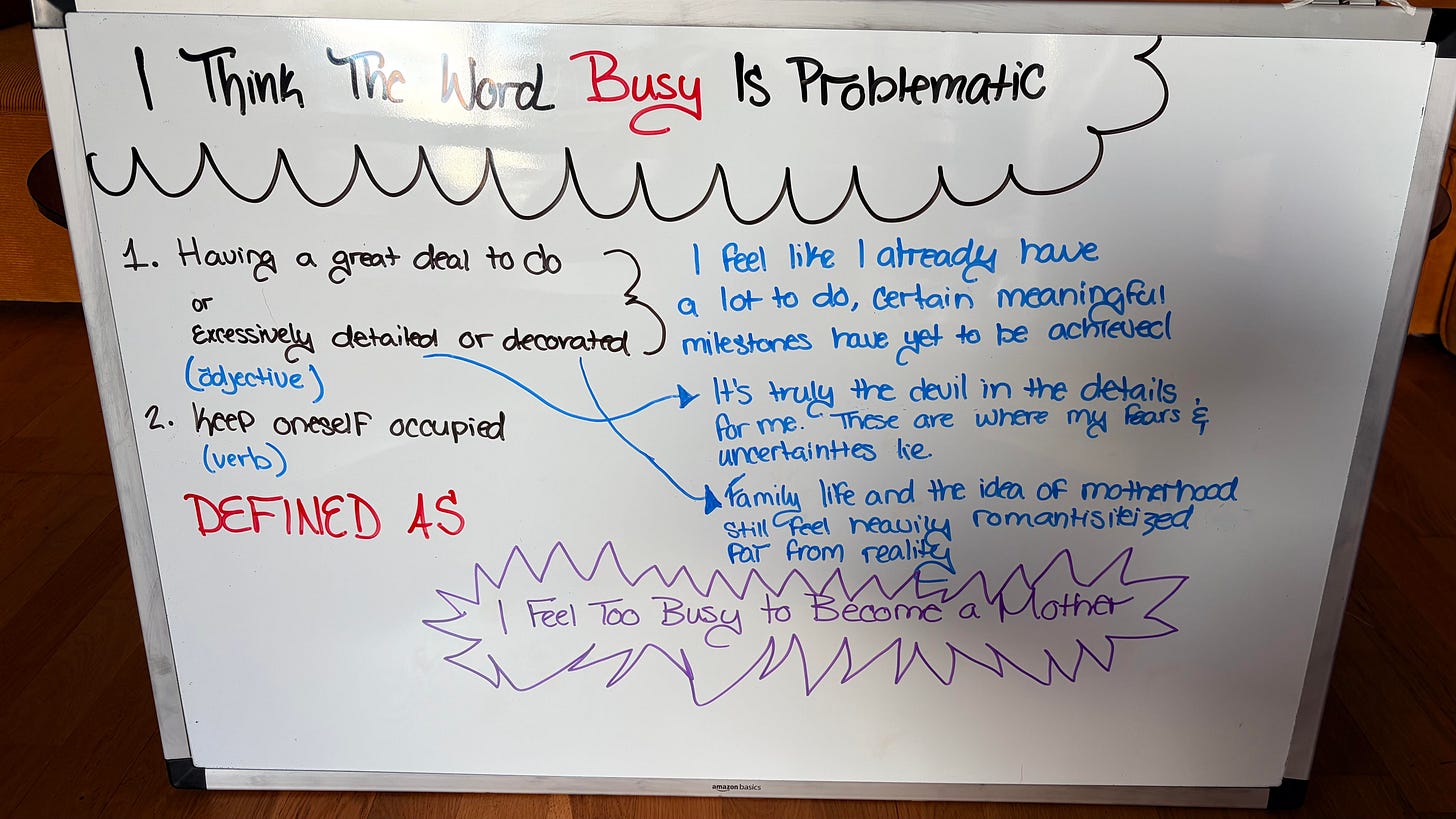 I Think The Word Busy Is Problematic
1. Having a great deal to do
or
Excessively detailed or decorated
(adjective)
2. Keep oneself occupied
(verb)
DEFINED AS
I feel like I already have
a lot to do, certain meaningful
milestones have yet to be achieved
It's truly the devil in the details
for me. These are where my fears &
uncertainties lie.
Family life and the idea of motherhood
still feel heavily romantisitized
far from reality
I Feel Too Busy to Become a Mother
amazon basics